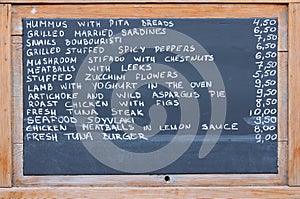 HUMMUS WITH PITA BREADS 4,50
GRILLED MARRIED SARDINES 6,50
SNAILS BOUBOURISTI 7,50
GRILLED STUFFED SPICY PEPPERS 6,50
MUSHROOM STIFADO WITH CHESTNUTS 6,50
MEATBALLS WITH LEEKS 7,50
STUFFED ZUCCHINI FLOWERS 5,50
LAMB WITH YOGHURT IN THE OVEN 9,50
ARTICHOKE AND WILD ASPARGUS PIE 9,50
ROAST CHICKEN WITH FIGS 8,50
FRESH TUNA STEAK 10,00
SEAFOOD SOYVLAKI 9,50
CHICKEN MEATBALLS IN LEMON SAUCE 8,00
FRESH TUNA BURGER 9,50